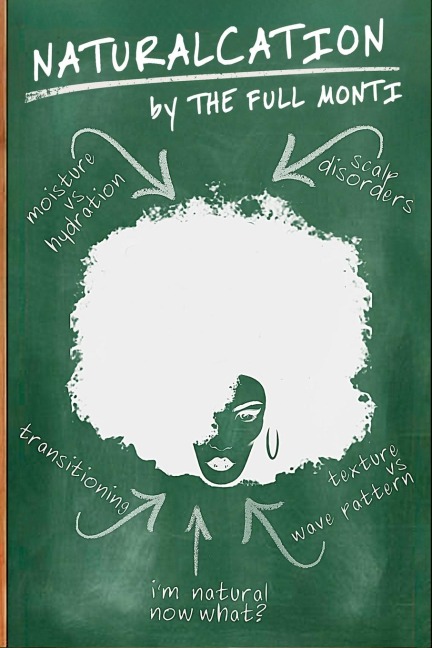 NATURALCATION
by THE FULL MONTI
moisture
vs
hydration
scalp
disorders
transitioning
texture
vs
wave pattern
i'm natural
now what?